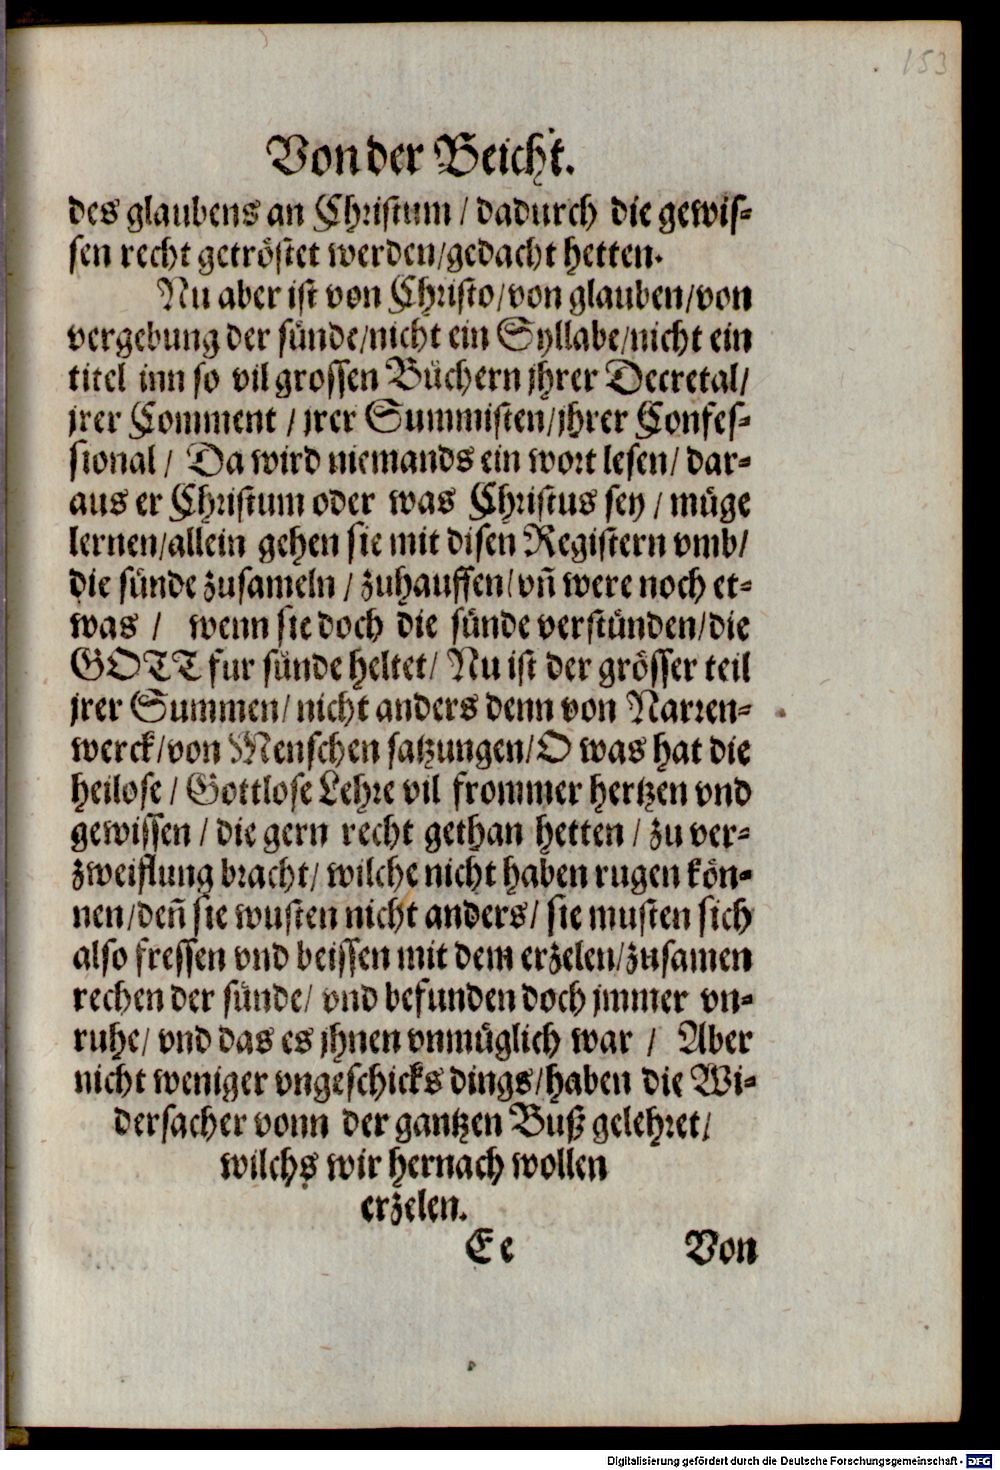 153
Von der Beicht.
des glaubens an Christum / dadurch die gewis-
sen recht getröstet werden/gedacht hetten.
Nu aber ist von Christo/von glauben/von
vergebung der sünde/nicht ein Syllabe/nicht ein
titel inn so vil grossen Büchern jhrer Decretal/
jrer Comment / jrer Summisten/jhrer Confes-
sional / Da wird niemands ein wort lesen/ dar-
aus er Christum oder was Christus sey / müge
lernen/allein gehen sie mit disen Registern vmb/
die sünde zusameln / zuhauffen/vñ were noch et-
was / wenn sie doch die sünde verstünden/die
GOTT fur sünde heltet/ Nu ist der grösser teil
jrer Summen/ nicht anders denn von Narren-
werck/von Menschen satzungen/O was hat die
heilose / Gottlose Lehre vil frommer hertzen vnd
gewissen / die gern recht gethan hetten / zu ver-
zweiflung bracht/ wilche nicht haben rugen kön-
nen/deñ sie wusten nicht anders/ sie musten sich
also fressen vnd beissen mit dem erzelen/zusamen
rechen der sünde/ vnd befunden doch jmmer vn-
ruhe/ vnd das es jhnen vnmüglich war / Aber
nicht weniger vngeschicks dings/haben die Wi-
dersacher vonn der gantzen Buß gelehret/
wilchs wir hernach wollen
erzelen.
Ee Von
Digitalisierung gefördert durch die Deutsche Forschungsgemeinschaft - DFG